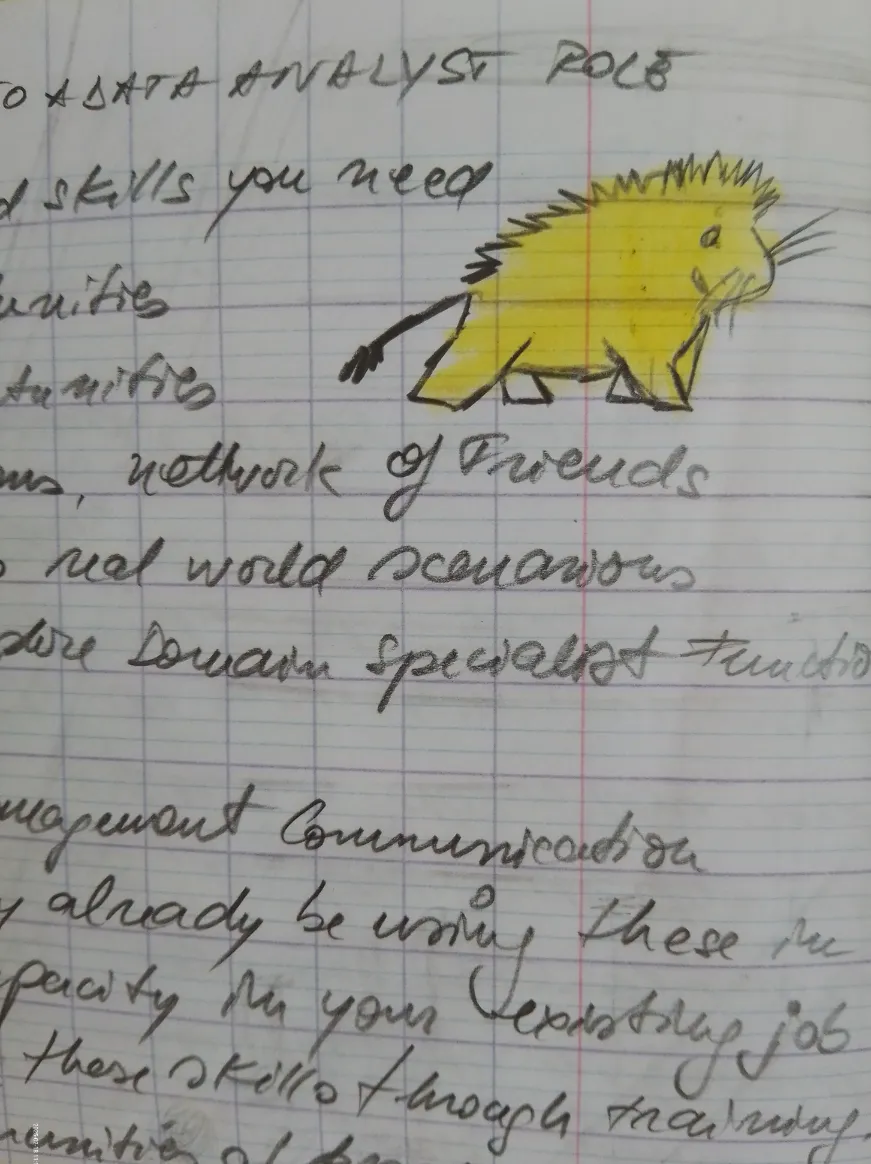 TO A DATA ANALYST ROLE
d skills you need
unities
tunities
ms, network of Friends
o real world scenarious
plore Domain Specialist Functio
nagement Communication
y already be using these in
pacity in your existing job
these skills through training.
munities of